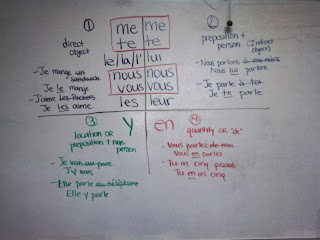 ①
direct
object
- Je mange un sandwich
Je le mange
- J'aime les
Je les aime
me me
te te
le/la/l' lui
nous nous
vous vous
les leur
②
preposition +
person (Indirect
object)
- Nous parlons à
Nous lui parlons
- Je parle à toi
Je te parle
③ y
location OR
preposition + non
person
- Je vais au parc
J'y vais
- Elle parle au téléphone
Elle y parle
en ④
quantity OR "de"
- Vous parlez de moi
Vous en parlez
- Tu as cinq
Tu en as cinq